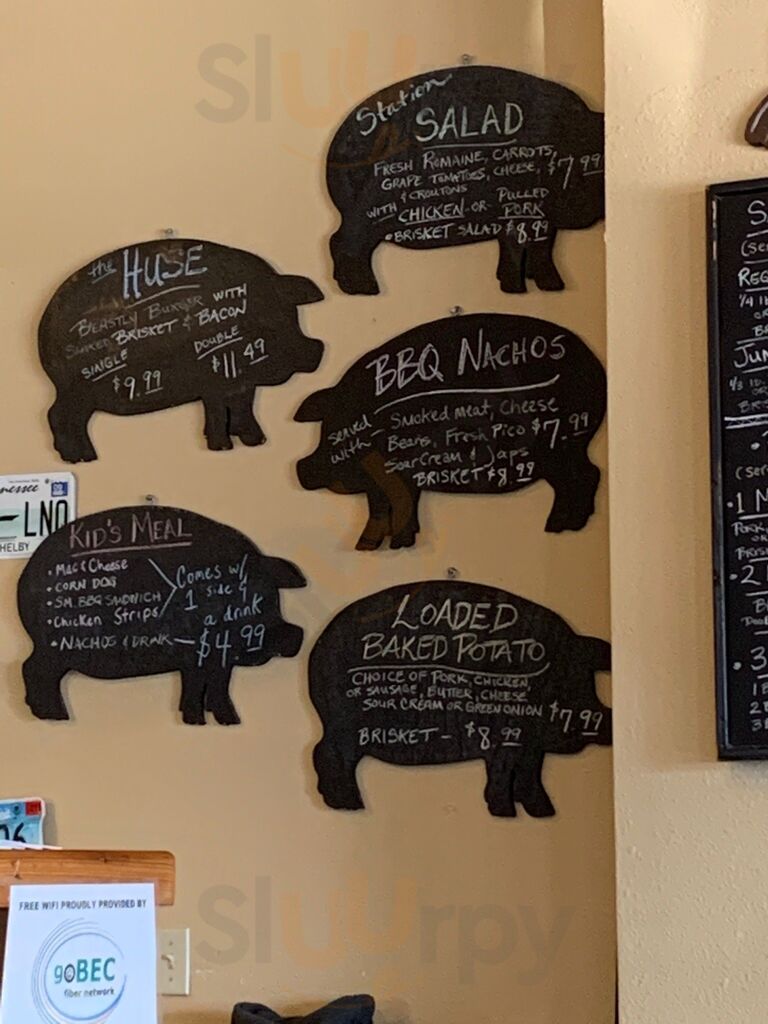 Sluurpy
Station
SALAD
FRESH ROMAINE, CARROTS,
GRAPE TOMATOES, CHEESE, $7.99
& CROUTONS
WITH CHICKEN OR PULLED
PORK
• BRISKET SALAD $8.99
the HUSE
BEASTLY BURGER WITH
SMOKED BRISKET & BACON
SINGLE DOUBLE
$9.99 $11.49
BBQ NACHOS
served
with - Smoked meat, Cheese
Beans, Fresh Pico $7.99
Sour Cream & Japs
BRISKET $8.99
LNO
HELBY
KID'S MEAL
• Mac & Cheese
• CORN DOG
• SM. BBQ SANDWICH
• Chicken Strips
Comes w/
1 side &
a drink
• NACHOS & DRINK — $4.99
LOADED
BAKED POTATO
CHOICE OF PORK, CHICKEN,
OR SAUSAGE, BUTTER, CHEESE
SOUR CREAM OR GREEN ONION $7.99
BRISKET - $8.99
S
(se
REG
1/4 lb
JUN
1/3 lb.
(ser
• 1
PORK,
• 2
• 3
1
2
3
FREE WIFI PROUDLY PROVIDED BY
goBEC
fiber network
Sluurpy